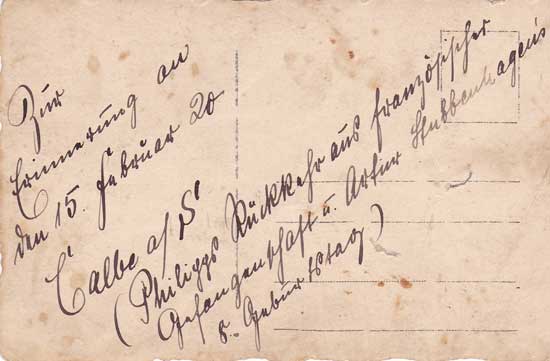 Zur
Erinnerung an
den 15. Februar 20
Calbe a/S
(Philipps Rückkehr aus französischer
Gefangenschaft u. Artur Stubbenhagens
8. Geburtstag)